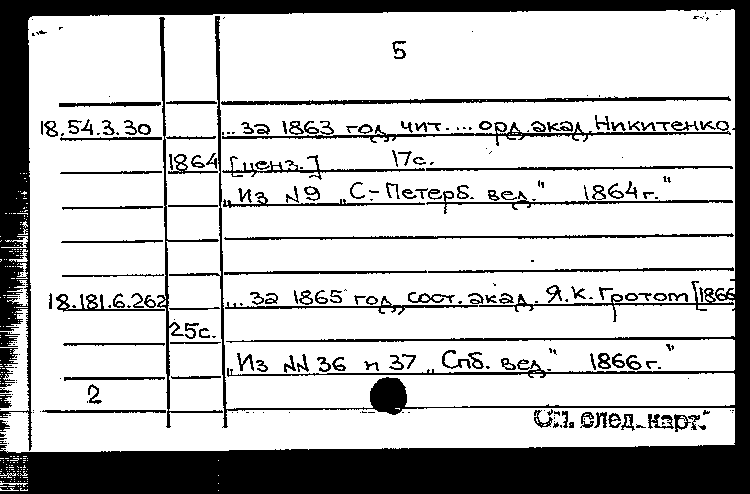 5
18.54.3.30 ... за 1863 год, чит. ... орд. акад. Никитенко.
1864 [ценз.] 17с.
„Из N9 „С-Петерб. вед." 1864г."
18.181.6.262 ... за 1865 год, сост. акад. Я.К. Гротом [1866
25с.
„Из NN 36 и 37 „Спб. вед." 1866г."
2
См. след. карт.